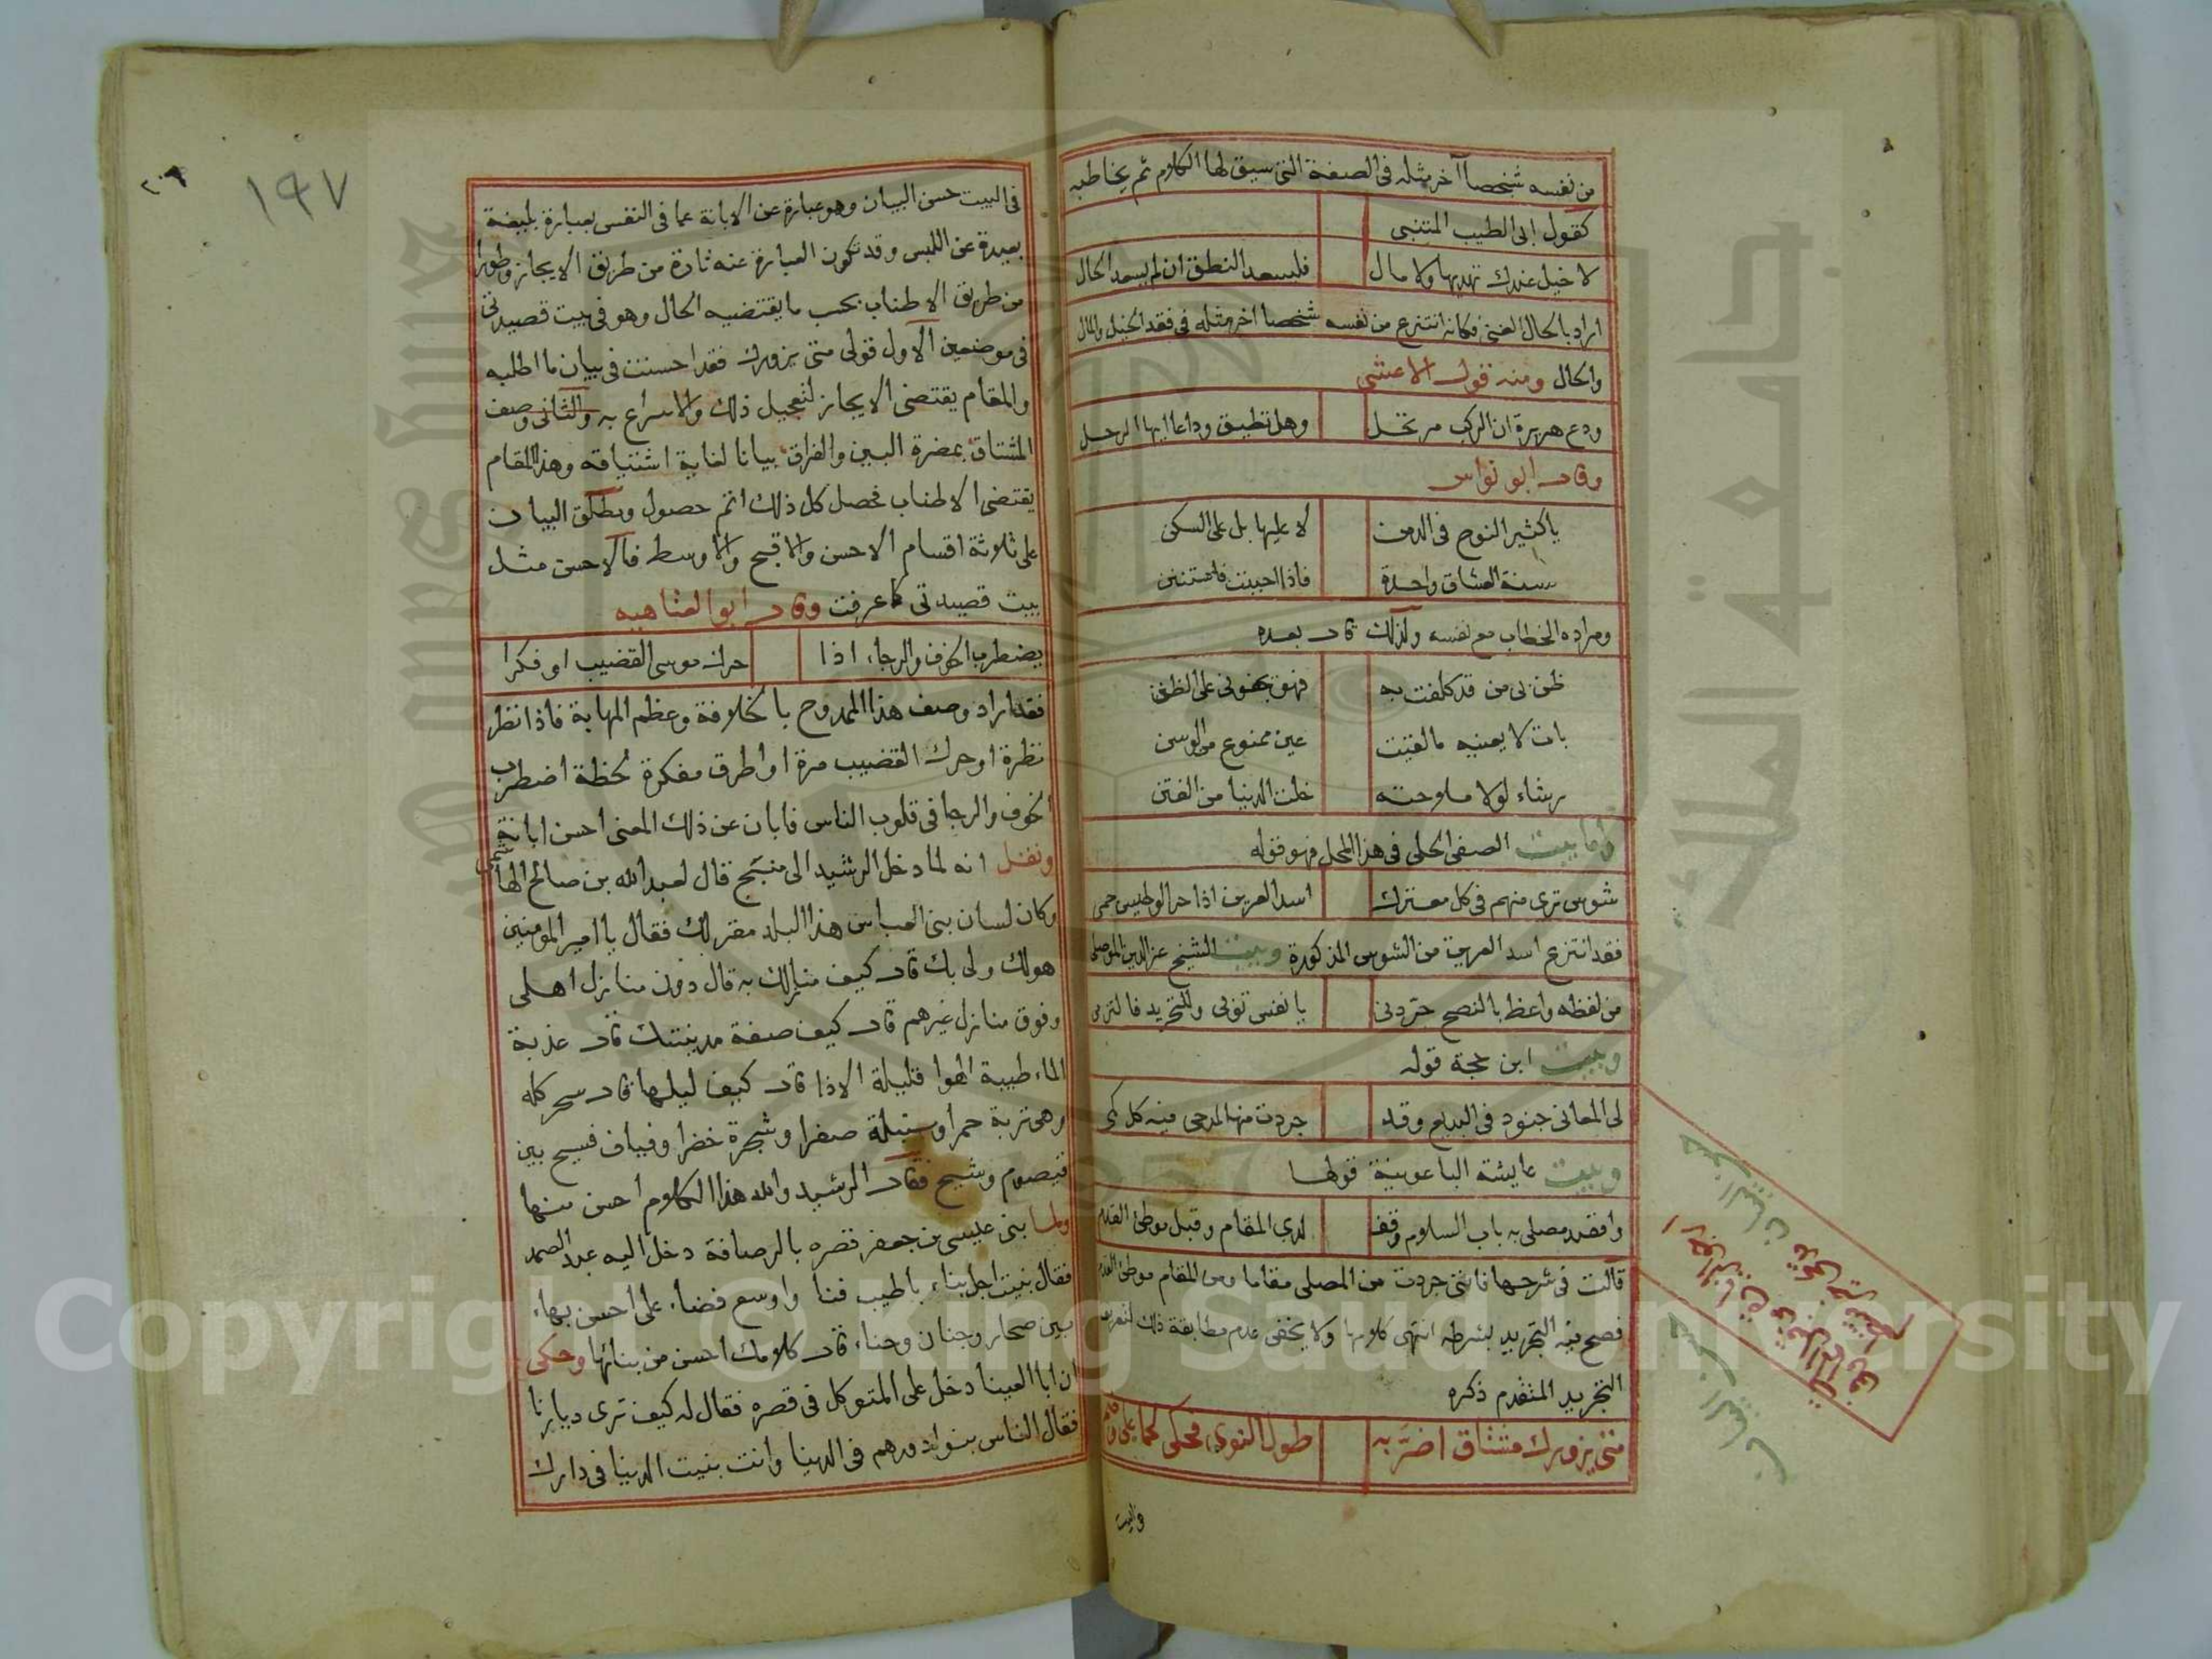 من نفسه شخصا آخر مثله في الصفة التي سيق لها الكلام ثم يخاطبه
كقول ابي الطيب المتنبي
لا خيل عندك تهديها ولا مال فليسعد النطق ان لم يسعد الحال
اراد بالحال الغنى فكانه انتزع من نفسه شخصا اخر مثله في فقد الخيل والمال
والحال ومنه قول الاعشى
ودع هريرة ان الركب مرتحل وهل تطيق وداعا ايها الرجل
وقال ابو نواس
يا كثير النوح في الدمن لا عليها بل على السكن
سنة العشاق واحدة فاذا احببت فاستنن
ومراده الخطاب مع نفسه ولذلك قال بعده
ظن بي من قد كلفت به فهو يجفوني على الظنن
بات لا يعنيه ما لقيت عين ممنوع من الوسن
رشاء لولا ملاحته خلت الدنيا من الفتن
واما بيت الصفي الحلي في هذا المحل فهو قوله
شوس ترى منهم في كل معترك اسد العرين اذا حر الوطيس حمى
فقد انتزع اسد العرين من الشوس المذكورة وبيت الشيخ عز الدين الموصلي
من لفظه واعظ بالنصح جردني يا نفس توبي وللتجريد فالتزمي
وبيت ابن حجة قوله
لي المعاني جنود في البديع وقد جردت منها لمدحي فيه كل كمي
وبيت عايشة الباعونية قولها
وافقد مصلى به باب السلام وقف لدى المقام وقبل موطئ القدم
قالت في شرحها فانني جردت من المصلى مقاما ومن المقام موطئ القدم
فصح فيه التجريد بشرطه انتهى كلامها ولا يخفى عدم مطابقة ذلك لتعريف
التجريد المتقدم ذكره
متى يزورك مشتاق اضر به طول النوى فحكى لحما على وضم
في البيت
١٩٧
٢٠٩
في البيت حسن البيان وهو عبارة عن الابانة عما في النفس بعبارة بليغة
بعيدة عن اللبس وقد تكون العبارة عنه تارة من طريق الايجاز وطورا
من طريق الاطناب بحسب ما يقتضيه الحال وهو في بيت قصيدتي
في موضعين الاول قولي متى يزورك فقد احسنت في بيان ما اطلبه
والمقام يقتضي الايجاز لتعجيل ذلك والاسراع به والثاني وصف
المشتاق بمضرة البين والفراق بيانا لغاية اشتياقه وهذا المقام
يقتضي الاطناب فحصل كل ذلك اتم حصول ومطلق البيان
على ثلاثة اقسام الاحسن والاقبح والاوسط فالاحسن مثل
بيت قصيدتي كما عرفت وقال ابو العتاهيه
يضطرب الخوف والرجاء اذا حرك موسى القضيب او فكرا
فقد اراد وصف هذا الممدوح بالخلافة وعظم المهابة فاذا نظر
نظرة او حرك القضيب مرة او اطرق مفكرة لحظة اضطرب
الخوف والرجا في قلوب الناس فابان عن ذلك المعنى احسن ابانة
ونقل انه لما دخل الرشيد الى منبج قال لعبد الله بن صالح الهاشمي
وكان لسان بني العباس هذا البلد مقر لك فقال يا امير المومنين
هو لك ولي بك قال كيف منازلك به قال دون منازل اهلي
وفوق منازل غيرهم قال كيف صفة مدينتك قال عذبة
الماء طيبة الهوا قليلة الاذا قال كيف ليلها قال سحر كله
وهي تربة حمرا وسنبلة صفرا وشجرة خضرا وفياف فسيح بين
قيصوم وشيح فقال الرشيد والله هذا الكلام احسن منها
ولما بنى عيسى بن جعفر قصره بالرصافة دخل اليه عبد الصمد
فقال بنيت اجل بناء باطيب فنا واوسع فضاء على احسن بهاء
بين صحار وجنان وحناء قال كلامك احسن من بنائها وحكي
ان ابا العينا دخل على المتوكل في قصره فقال له كيف ترى ديارنا
فقال الناس بنوا دورهم في الدنيا وانت بنيت الدنيا في دارك
Copyright © King Saud University
جامعة الملك سعود